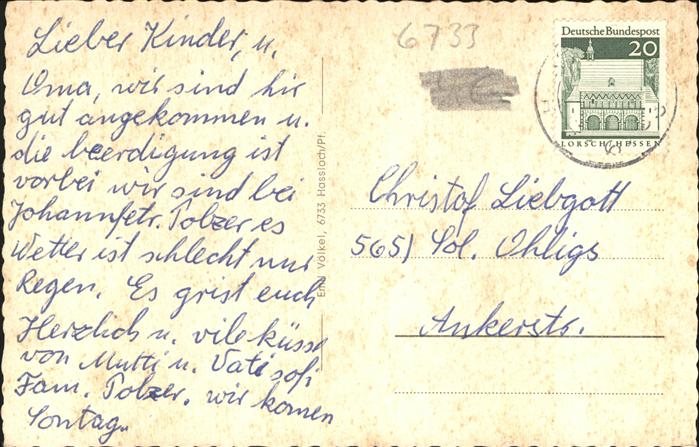 Lieber Kinder, u.
Oma, wir sind hir
gut angekommen u.
die beerdigung ist
vorbei wir sind bei
Tolzer es
Wetter ist schlecht nur
Regen. Es grist euch
Herzlich u. vile küsse
von Mutti u. Vati
Fam. Tolzer. wir komen
Sontag.
Erno Völkel, 6733 Hassloch/Pf.
6733
Deutsche Bundespost
20
LORSCH/HESSEN
Christof Liebgott
5651 Sol. Ohligs
Ankerstr.